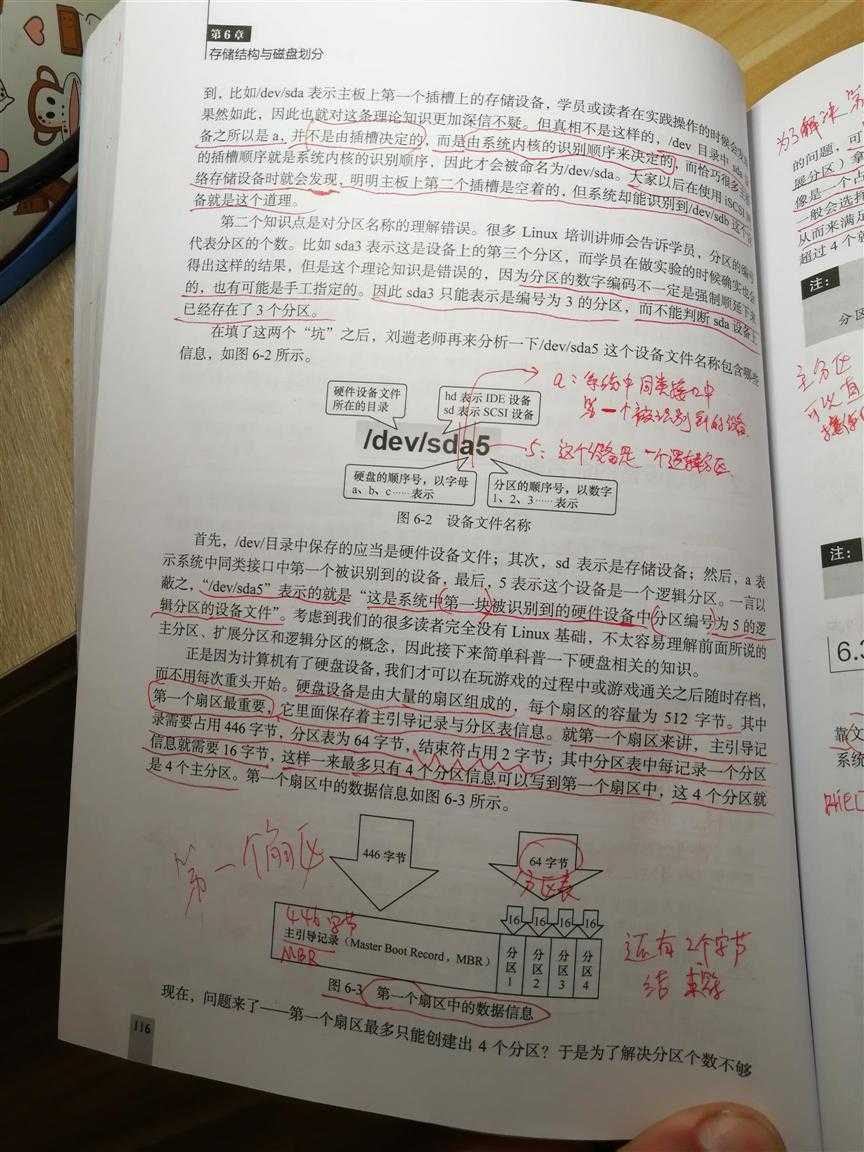 第6章
存储结构与磁盘划分
到，比如/dev/sda 表示主板上第一个插槽上的存储设备，学员或读者在实践操作的时候会发现
果然如此，因此也就对这条理论知识更加深信不疑。但真相不是这样的，/dev 目录中 sda 设
备之所以是 a，并不是由插槽决定的，而是由系统内核的识别顺序来决定的，而恰巧很多主板
的插槽顺序就是系统内核的识别顺序，因此才会被命名为/dev/sda。大家以后在使用 iSCSI 网
络存储设备时就会发现，明明主板上第二个插槽是空着的，但系统却能识别到/dev/sdb 这个设
备就是这个道理。
第二个知识点是对分区名称的理解错误。很多 Linux 培训讲师会告诉学员，分区的编号
代表分区的个数。比如 sda3 表示这是设备上的第三个分区，而学员在做实验的时候确实也会
得出这样的结果，但是这个理论知识是错误的，因为分区的数字编码不一定是强制顺延下来
的，也有可能是手工指定的。因此 sda3 只能表示是编号为 3 的分区，而不能判断 sda 设备上
已经存在了 3 个分区。
在填了这两个“坑”之后，刘遄老师再来分析一下/dev/sda5 这个设备文件名称包含哪些
信息，如图 6-2 所示。
硬件设备文件
所在的目录
hd 表示 IDE 设备
sd 表示 SCSI 设备
a：系统中同类接口中
第一个被识别到的设备
/dev/sda5
5：这个设备是一个逻辑分区
硬盘的顺序号，以字母
a、b、c……表示
分区的顺序号，以数字
1、2、3……表示
图 6-2 设备文件名称
首先，/dev/目录中保存的应当是硬件设备文件；其次，sd 表示是存储设备；然后，a 表
示系统中同类接口中第一个被识别到的设备，最后，5 表示这个设备是一个逻辑分区。一言以
蔽之，“/dev/sda5”表示的就是“这是系统中第一块被识别到的硬件设备中分区编号为 5 的逻
辑分区的设备文件”。考虑到我们的很多读者完全没有 Linux 基础，不太容易理解前面所说的
主分区、扩展分区和逻辑分区的概念，因此接下来简单科普一下硬盘相关的知识。
正是因为计算机有了硬盘设备，我们才可以在玩游戏的过程中或游戏通关之后随时存档，
而不用每次重头开始。硬盘设备是由大量的扇区组成的，每个扇区的容量为 512 字节。其中
第一个扇区最重要，它里面保存着主引导记录与分区表信息。就第一个扇区来讲，主引导记
录需要占用 446 字节，分区表为 64 字节，结束符占用 2 字节；其中分区表中每记录一个分区
信息就需要 16 字节，这样一来最多只有 4 个分区信息可以写到第一个扇区中，这 4 个分区就
是 4 个主分区。第一个扇区中的数据信息如图 6-3 所示。
第一个扇区
446 字节
64 字节
分区表
16 16 16 16
446 字节
主引导记录（Master Boot Record，MBR）
MBR
分区1
分区2
分区3
分区4
还有2个字节
结束符
图 6-3 第一个扇区中的数据信息
现在，问题来了——第一个扇区最多只能创建出 4 个分区？于是为了解决分区个数不够
116
为了解决
的问题，可
展分区）拿
像是一个占
一般会选择
从而来满足
超过 4 个
注：
分区
主分区
可以直
注：
6.3
靠文
系统